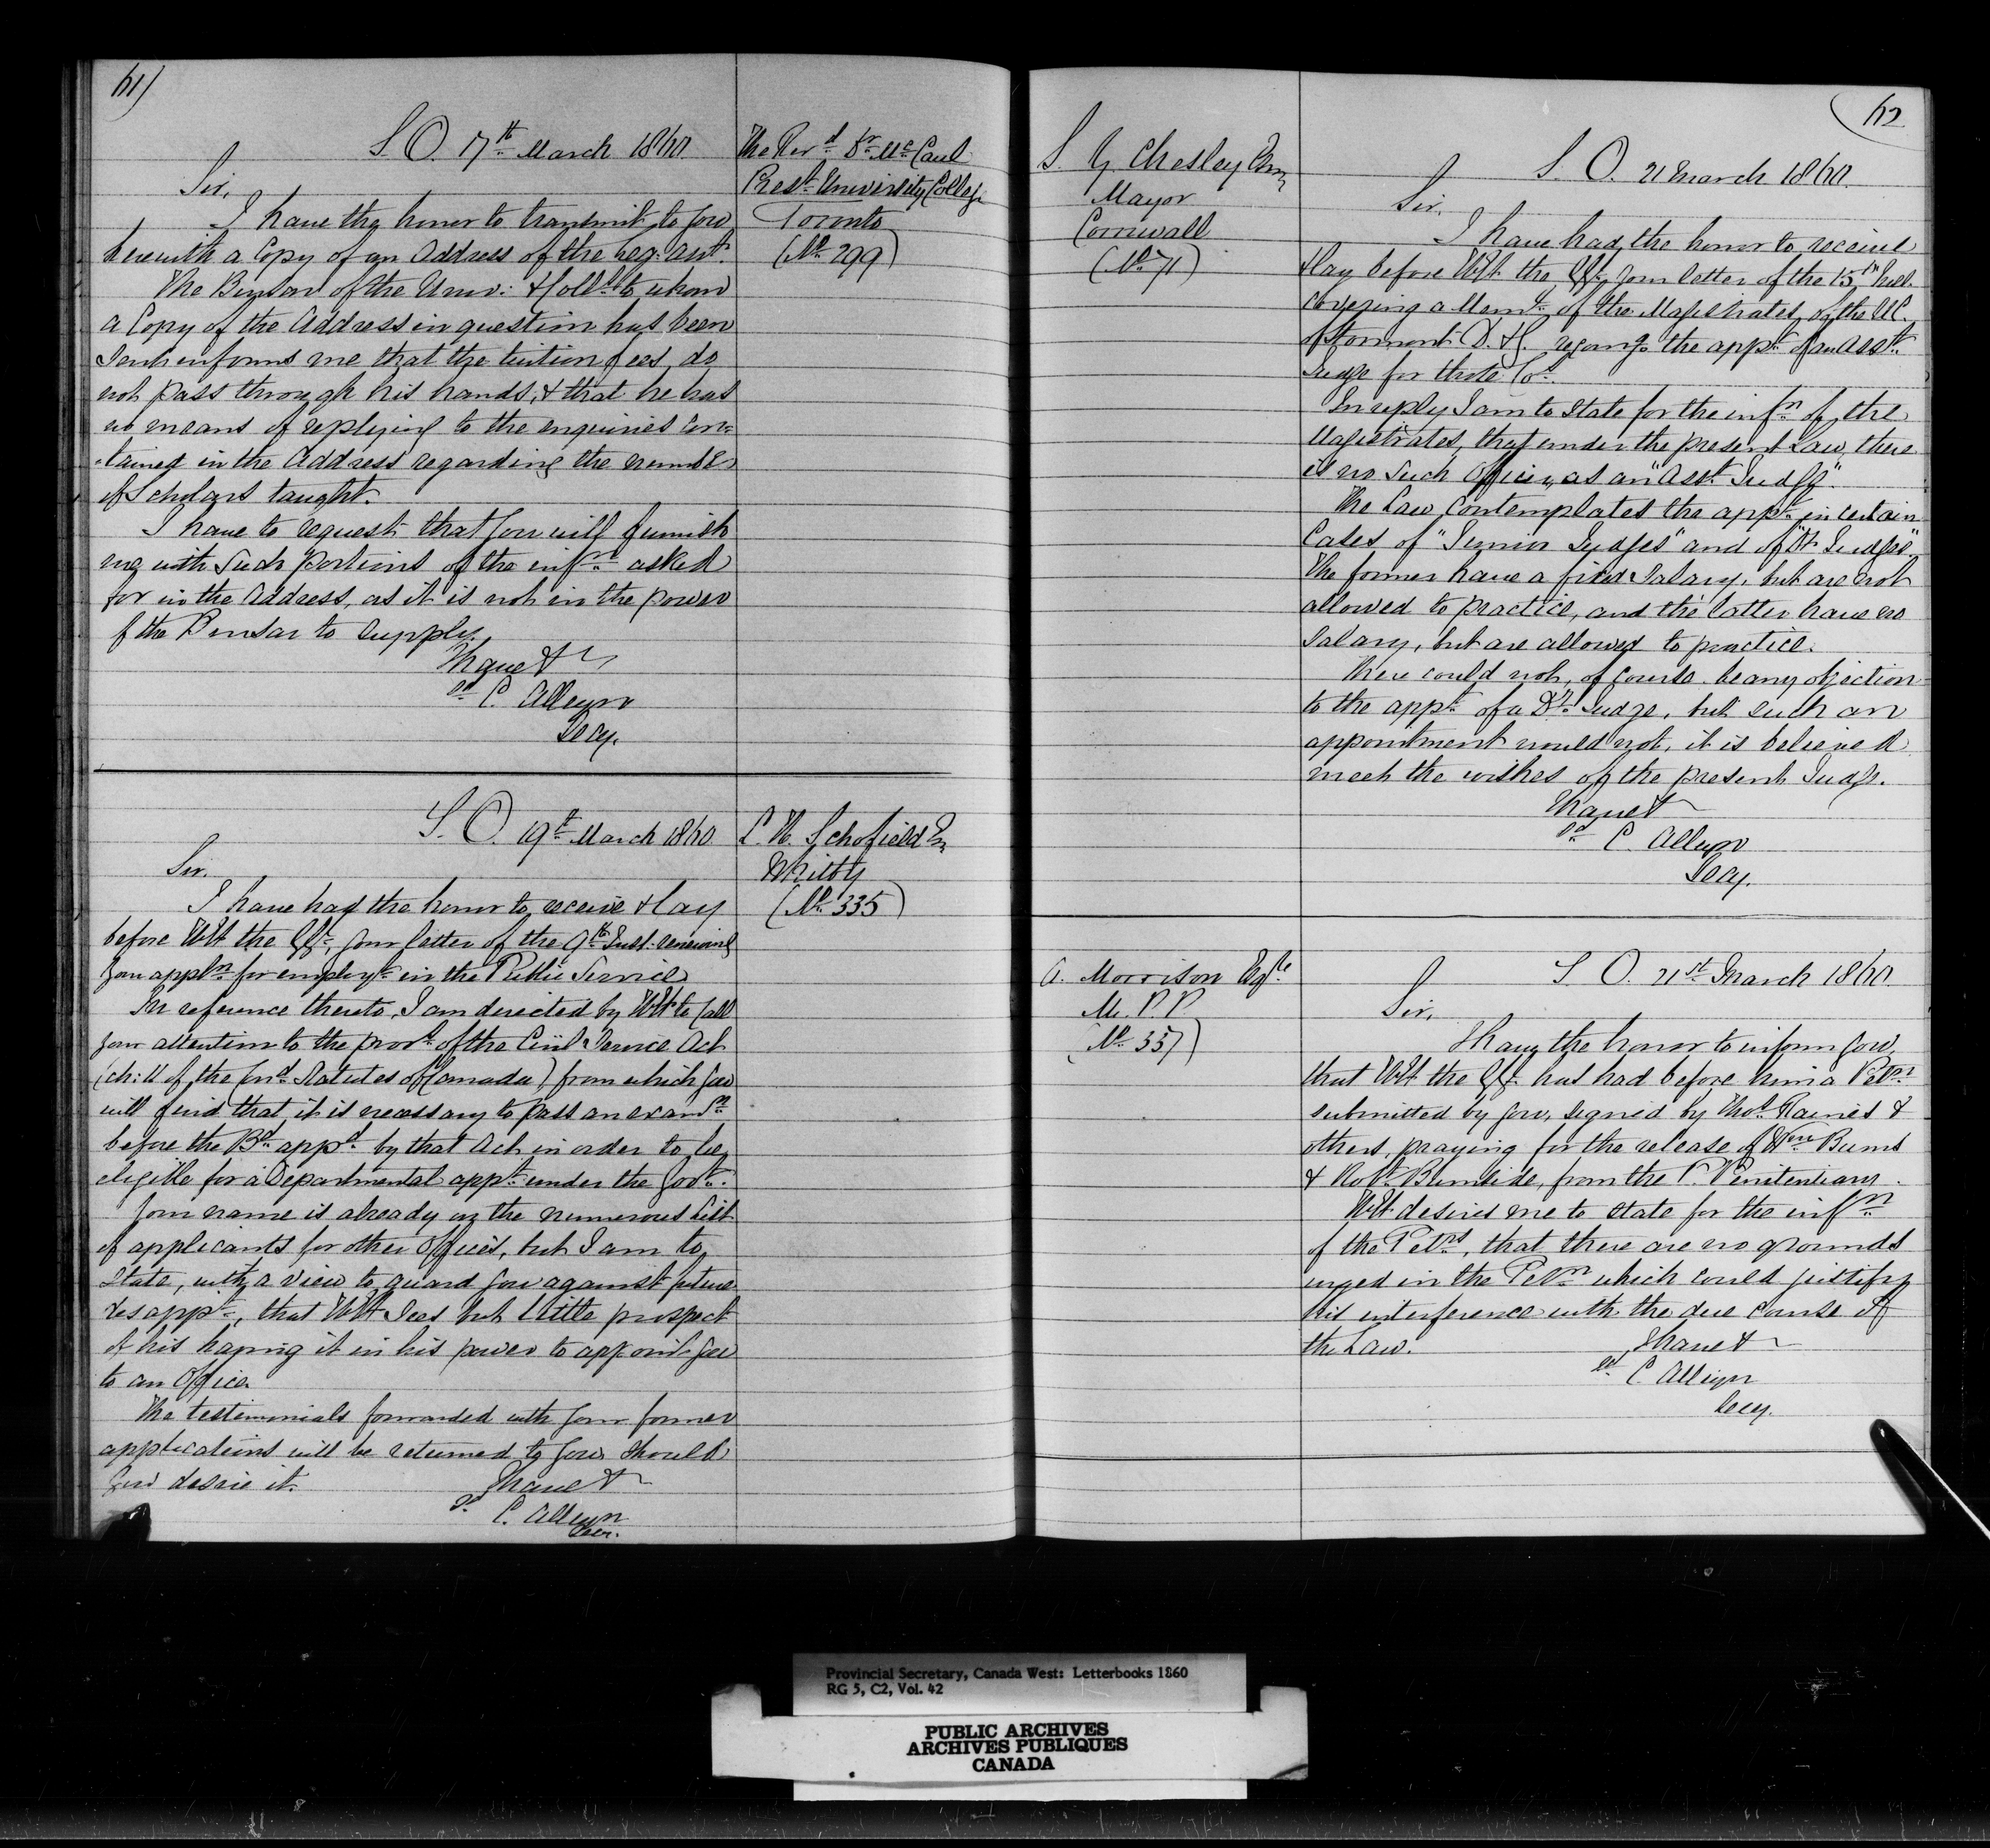 61)
S. O. 17th March 1860
The Revd Dr McCaul
Prest University College
Toronto
(No 299)
Sir,
I have the honor to transmit to you
herewith a Copy of an Address of the Leg: Asst.
The Bursar of the Univ: & Colls to whom
a Copy of the Address in question has been
sent informs me that the tuition fees do
not pass through his hands, & that he has
no means of replying to the enquiries con-
-tained in the Address regarding the number
of Scholars taught.
I have to request that you will furnish
me with such portions of the infn asked
for in the Address, as it is not in the power
of the Bursar to supply.
I have &
sd C. Alleyn
Secy.
S. O. 19th March 1860
L. H. Schofield Esq
Whitby
(No 335)
Sir.
I have had the honor to receive & lay
before HE the GG, your letter of the 9th Inst. renewing
your appln for employt in the Public Service
In reference thereto, I am directed by HE to call
your attention to the provs of the Civil Service Act
(ch: 11 of the Cond Statutes of Canada) from which you
will find that it is necessary to pass an examn
before the Bd appd by that Act in order to be
eligible for a Departmental appt under the Govt.
Your name is already on the numerous list
of applicants for other offices, but I am to
state, with a view to guard you against future
disappt, that HE sees but little prospect
of his having it in his power to appoint you
to an Office
The testimonials forwarded with your former
applications will be returned to you should
you desire it.
I have &
sd C. Alleyn
Secy.
62
S. Y. Chesley Esq
Mayor
Cornwall
(No 71)
S. O. 21 March 1860.
Sir,
I have had the honor to receive
& lay before HE the GG, your letter of the 15th Inst.
covering a Meml of the Magistrates of the UC.
of Stormont D. & G. regardg the appt of an Asst
Judge for those Cos.
In reply I am to state for the infn of the
Magistrates, that under the present Law, there
is no such Officer, as an "Asst Judge".
The Law contemplates the appt in certain
Cases of "Junior Judges" and of "Dy Judges".
The former have a fixed salary, but are not
allowed to practice, and the latter have no
salary, but are allowed to practice.
There could not, of course be any objection
to the appt of a Dy Judge, but such an
appointment would not, it is believed
meet the wishes of the present Judge.
I have &
sd C. Alleyn
Secy.
A. Morrison Esqre
M. P. P.
(No 357)
S. O. 21st March 1860.
Sir,
I have the honor to inform you,
that HE the GG has had before him a Petn
submitted by you, signed by Thos Raines &
others, praying for the release of Wm Burns
& Robt Burnside, from the P. Penitentiary.
HE desires me to state for the infn
of the Petrs, that there are no grounds
urged in the Petn which could justify
his interference with the due course of
the Law.
I have &
sd C. Alleyn
Secy.
Provincial Secretary, Canada West: Letterbooks 1860
RG 5, C2, Vol. 42
PUBLIC ARCHIVES
ARCHIVES PUBLIQUES
CANADA